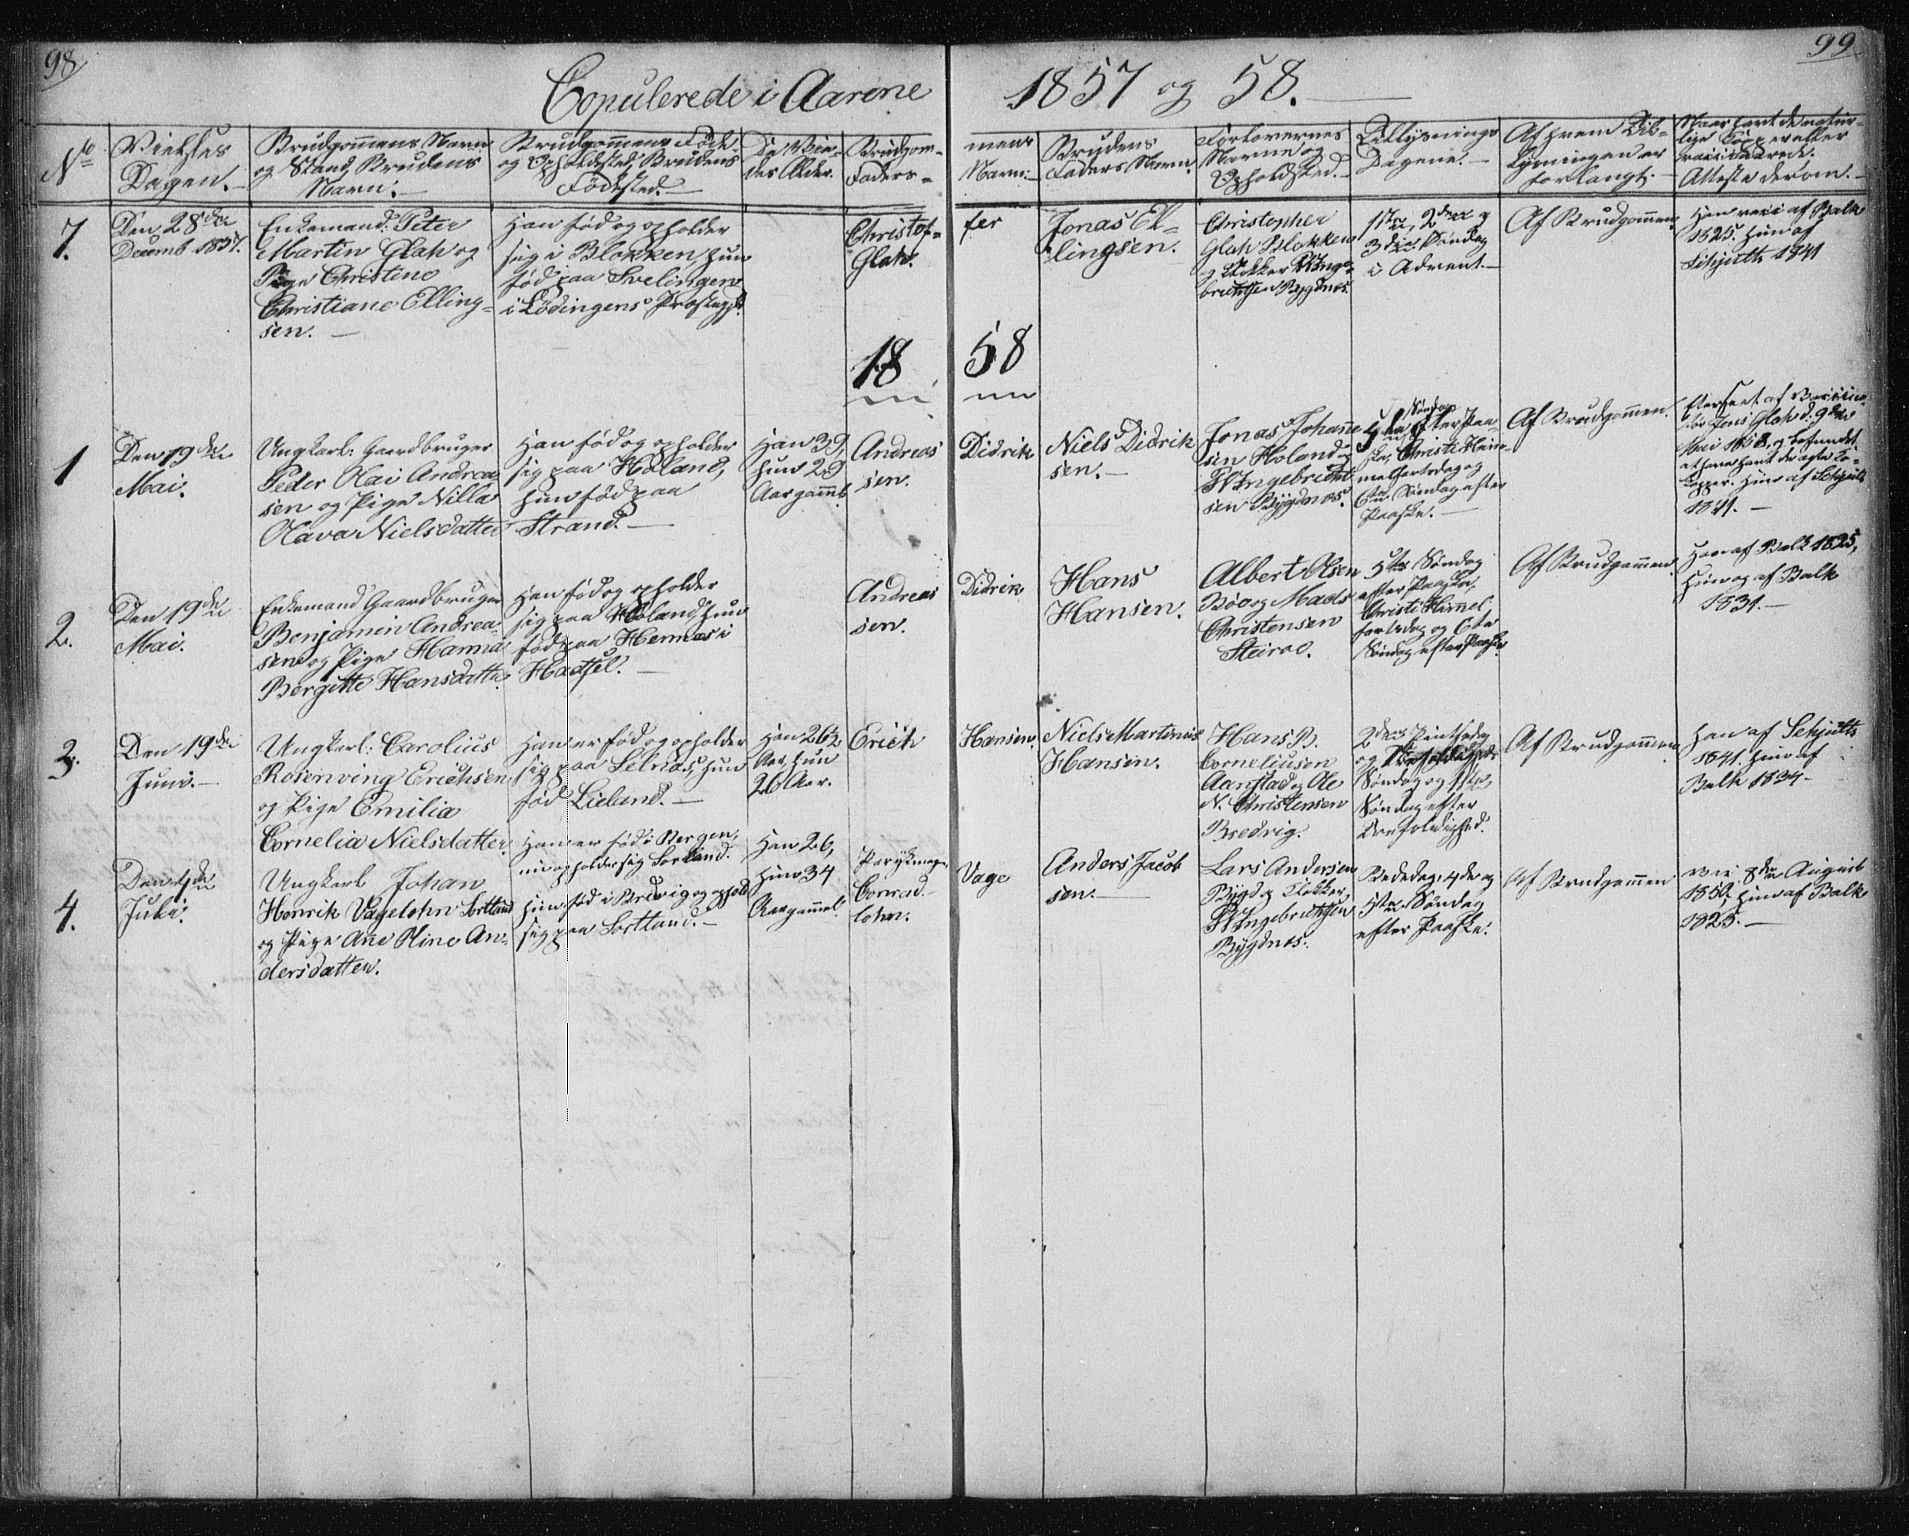 98
99
Copulerede i Aarene 1857 og 58.
No
Vielses
Dagen.
Brudgommens Navn
og Stand, Brudens
Navn.
Brudgommens Føde-
og Opholdssted, Brudens
Fødested.
De Vie-
des Alder.
Brudgom-
Faders-
mens
Navn.
Brudens
Faders Navn.
Forlovernes
Navne og
Opholdsted.
Tillysnings
Dagene.
Af hvem Til-
lysningen er
forlangt.
Naar havt de natur-
lige Kopper eller
vaccinerede.
Attester derom.
7.
Den 28de
Decemb 1857.
Enkemand. Peter
Martin Glah og
Pige Christine
Christiane Elling-
sen.
Han fød og opholder
sig i Blokken, hun
fød paa Svelingen
i Lødingens Præstegjd.
Christof-
Glah.
fer
Jonas El-
lingsen.
Christopher
Glah Blokken
og Klokker W Inge-
brethsen Bygdnes.
1ste, 2den og
3die Søndag
i Advent.
Af Brudgommen
Han vac: af Balk
1825. Hun af
Schjelth 1841
18 58
1
Den 19de
Mai.
Ungkarl: Gaardbruger
Peder Kai Andrea-
sen og Pige Nilla
Olava Nielsdatter
Han fød og opholder
sig paa Holand,
hun fød paa
Strand.
Han 39,
hun 29
Aar gamml.
Andreas
sen.
Didrik
Niels Didrik
sen.
Jonas Johanne
sen Holand og
W Ingebreth
sen Bygdnes.
5te Søndag efter Paa-
ske, Christi Him-
melfartsdag og
6te Søndag efter
Paaske.
Af Brudgommen.
Efterseet af Vaccina-
tør Jens Glah d. 9de
Mai 1858 og befundet
at have havt de ægte Ko-
kopper. Hun af Schjelth
1841.
2.
Den 19de
Mai.
Enkemand Gaardbruger
Benjamin Andrea-
sen og Pige Hanna
Bergitte Hansdatter.
Han fød og opholder
sig paa Holand, hun
fød paa Hennes i
Hadsel.
Andreas
sen.
Didrik
Hans
Hansen.
Albert Olsen
Bø og Mads
Christensen
Steiroe.
5te Søndag
efter Paaske,
Christi Himmel
fartsdag og 6te
Søndag efter Paaske
Af Brudgommen.
Han af Balk 1825,
Hun og af Balk
1831.
3.
Den 19de
Juni.
Ungkarl: Carolius
Rosenving Erichsen
og Pige Emilia
Cornelia Nielsdatter.
Han er fød og opholder
sig paa Selnæs, hun
fød Lieland.
Han 26½
Aar, hun
26 Aar.
Erich
Hansen.
Niels Martinus
Hansen.
Hans B.
Corneliusen
Aarstad og Ole
N. Christensen
Bredvig.
2den Pintsedag
og Trefoldigheds
Søndag og 1ste
Søndag efter
Trefoldighed.
Af Brudgommen
Han af Schjelth
1841. Hun af
Balk 1834
4.
Den 4de
Juli.
Ungkarl Johan
Henrik Vagelohn Sortland
og Pige Ane Stine An-
dersdatter.
Han er fød i Bergen,
nu opholder sig Sortland.
hun fød i Bredvig og opholder
sig paa Sortland.
Han 26,
Hun 34
Aar gammel.
Parykmager
Conrad
lohn.
Vage
Anders Jacob
sen.
Lars Andersen
Bygd og Klokker
W Ingebrethsen
Bygdnes.
Bededag, 4de og
5te Søndag
efter Paaske.
Af Brudgommen
Vac: 8de August
1850, Hun af Balk
1825.